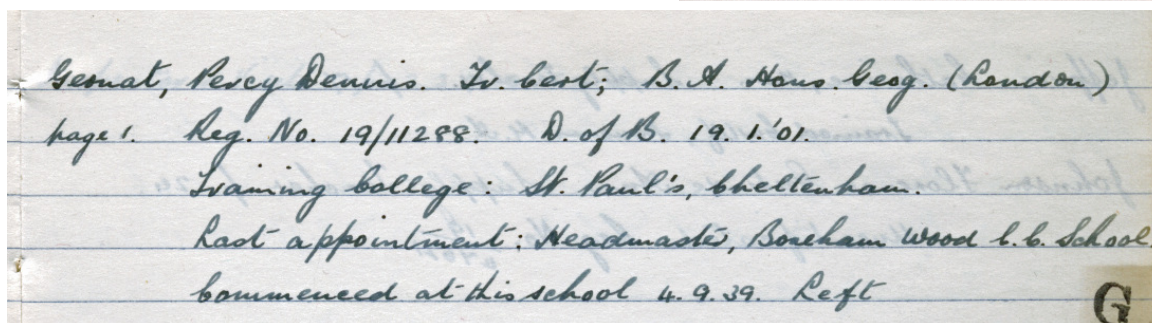 Gesnat, Percy Dennis. Tr. Cert; B.A. Hons. Geog. (London)
page 1. Reg. No. 19/11288. D. of B. 19.1.'01.
Training College: St. Paul's, Cheltenham.
Last appointment: Headmaster, Boreham Wood C.C. School.
Commenced at this school 4.9.39. Left
G